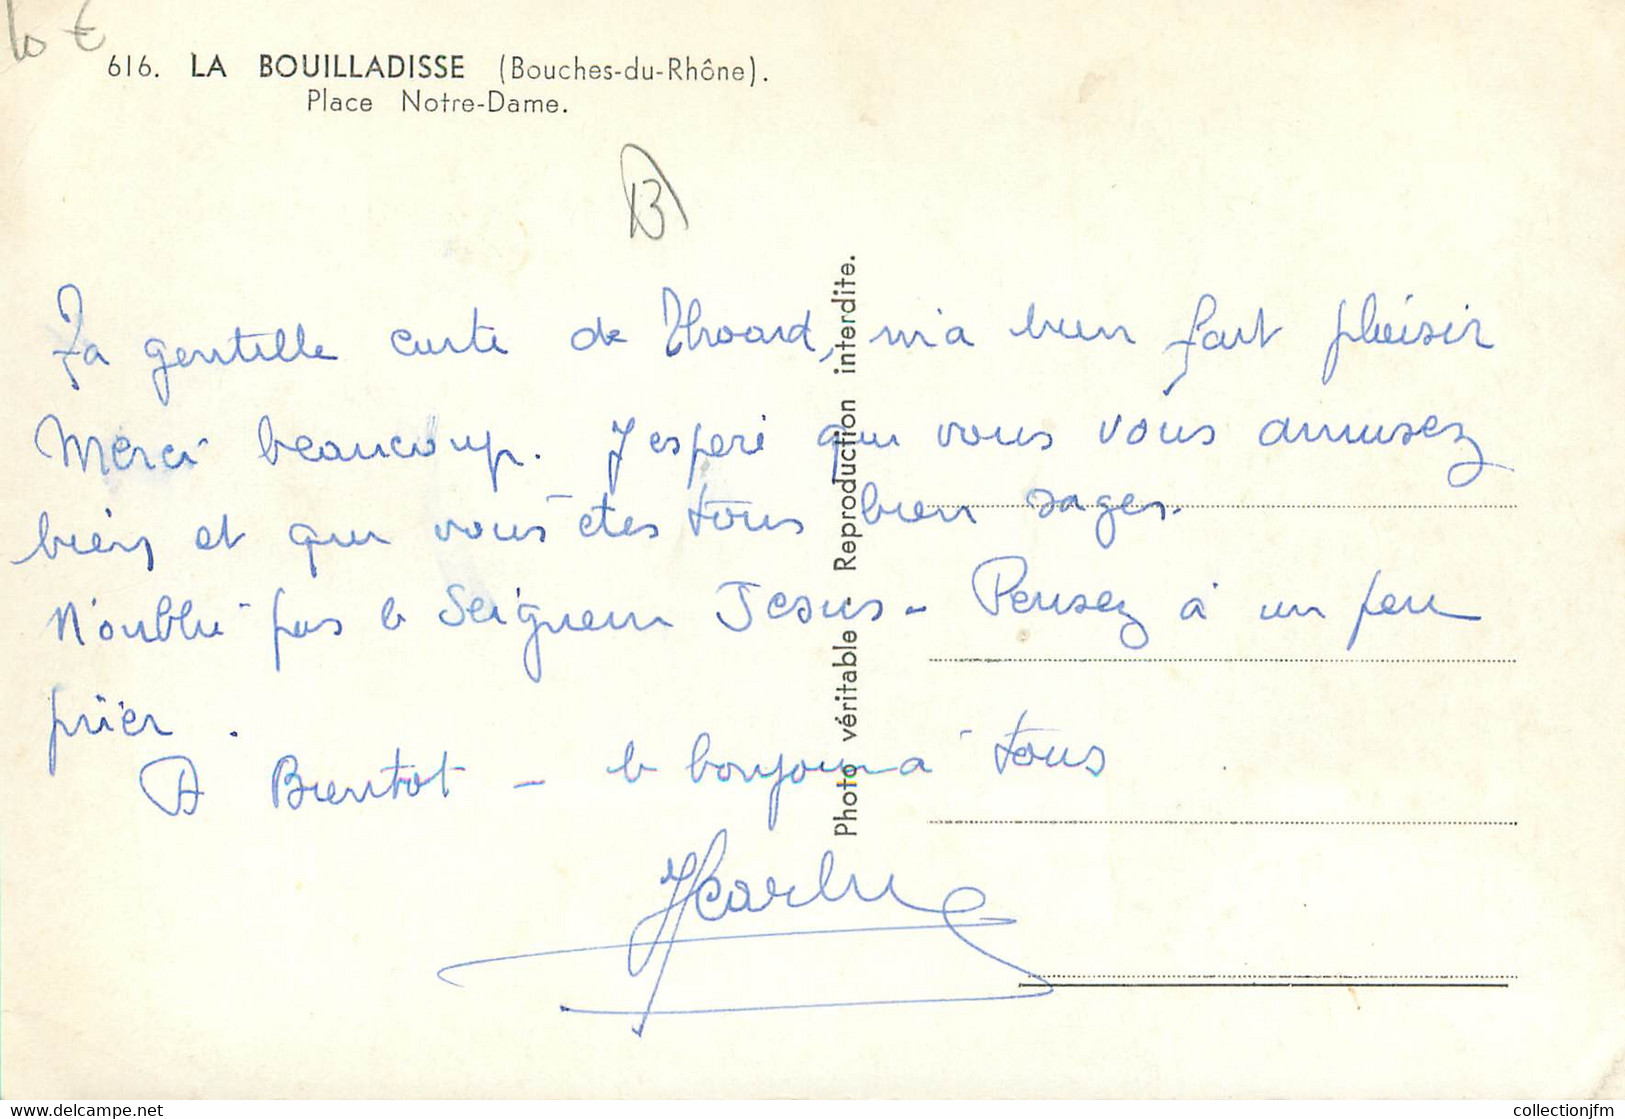 10 €
616. LA BOUILLADISSE (Bouches-du-Rhône).
Place Notre-Dame.
13
Ta gentille carte de Thoard, m'a bien fait plaisir
Merci beaucoup. J'espère que vous vous amusez
bien et que vous êtes tous bien sages.
N'oublie pas le Seigneur Jesus - Pensez à un peu
prier.
A Bientot - le bonjour à tous
Photo véritable - Reproduction interdite.
collectionjfm